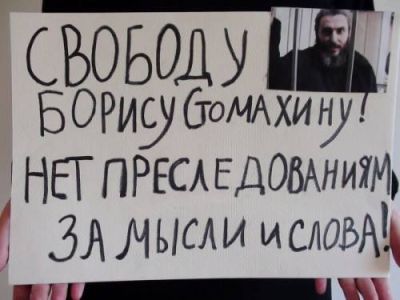 СВОБОДУ
БОРИСУ СТОМАХИНУ!
НЕТ ПРЕСЛЕДОВАНИЯМ
ЗА МЫСЛИ И СЛОВА!